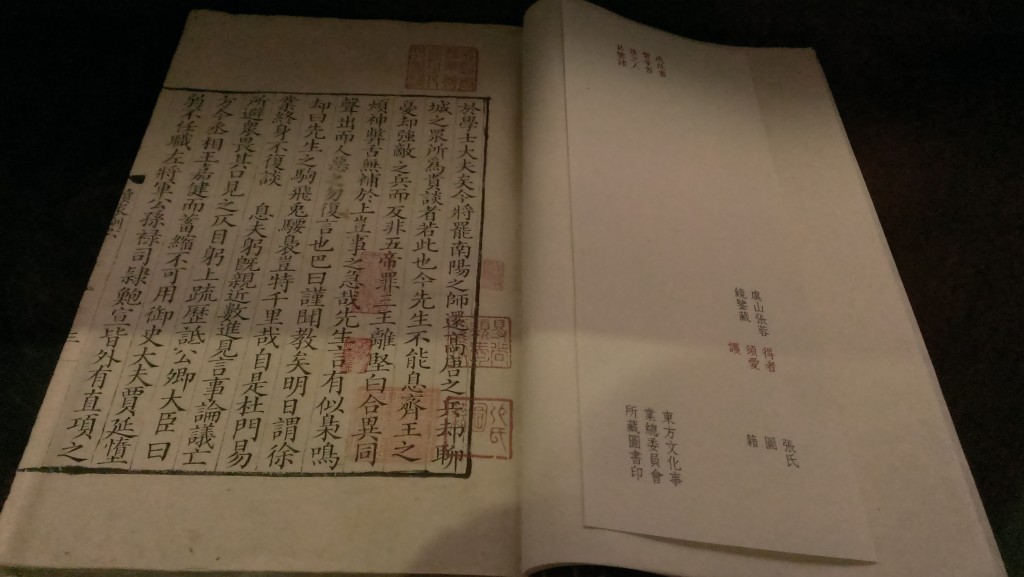 張氏
圖
籍
得者
須愛
護
虞山張蓉
鏡鑒藏
東方文化事
業總委員會
所藏圖書印
於學士大夫矣今將罷南陽之師還高唐之兵却聊
城之眾所為貴談者若此也今先生不能息齊王之
憂却強敵之兵而反非五帝罪三王離堅白合異同
煩神弊舌無補於上豈事之急哉先生言有似梟鳴
聲出而人惡之勿復言也巴曰謹聞教矣明日謂徐
却曰先生之駒飛兎騕褭豈特千里哉自是杜門易
業終身不復談　息夫躬既親近數進見言事論議亡
所避眾畏其口見之仄目躬上疏歷詆公卿大臣曰
方今丞相王嘉健而蓄縮不可用御史大夫賈延墮
弱不任職左將軍公孫祿司隸鮑宣皆外有直項之
三